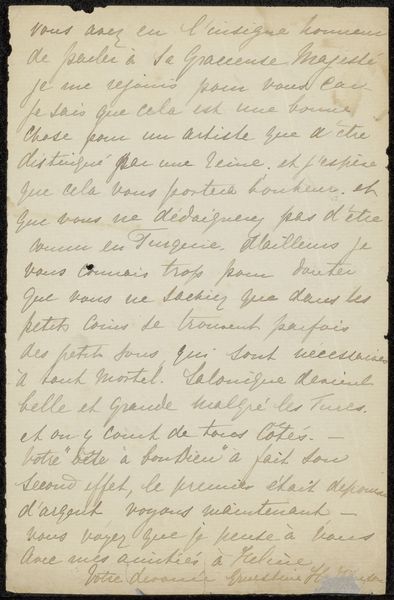 vous avez eu l'insigne honneur
de parler à Sa Gracieuse Majesté
je me rejouis pour vous car
je sais que cela est une bonne
chose pour un artiste que d'être
distingué par une reine. et j'espère
que cela vous portera bonheur. et
que vous ne dédaignerez pas d'être
connu en Turquie. d'ailleurs je
vous connais trop pour douter
que vous ne sachiez que dans les
petits coins se trouvent parfois
des petits sous qui sont nécessaires
à tout mortel. Salonique devient
belle et grande malgré les Turcs.
et on y court de tous côtés. —
Votre "bête à bon Dieu" a fait son
second effet, le premier était
d'argent voyons maintenant —
vous voyez que je pense à vous
avec mes amitiés à Helène
Votre devouée Ernestine H.